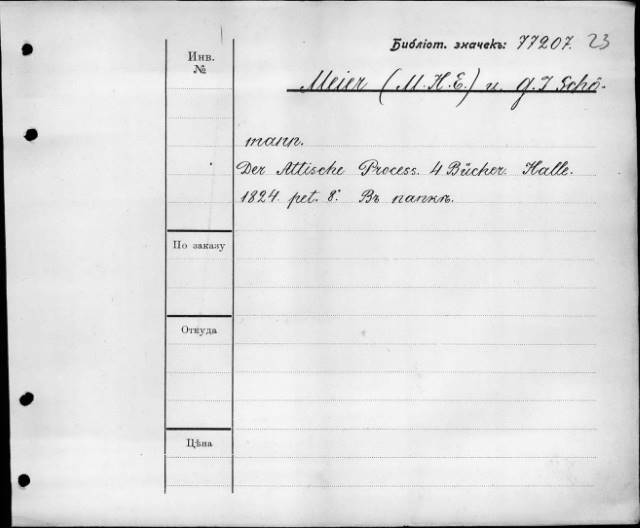 Библіот. значекъ: 77207. 23
Инв.
№
Meier (M. H. E.) u. G. J Schö-
mann.
Der Attische Process. 4 Bücher. Halle.
1824. pet. 8°. Въ папкѣ.
По заказу
Откуда
Цѣна